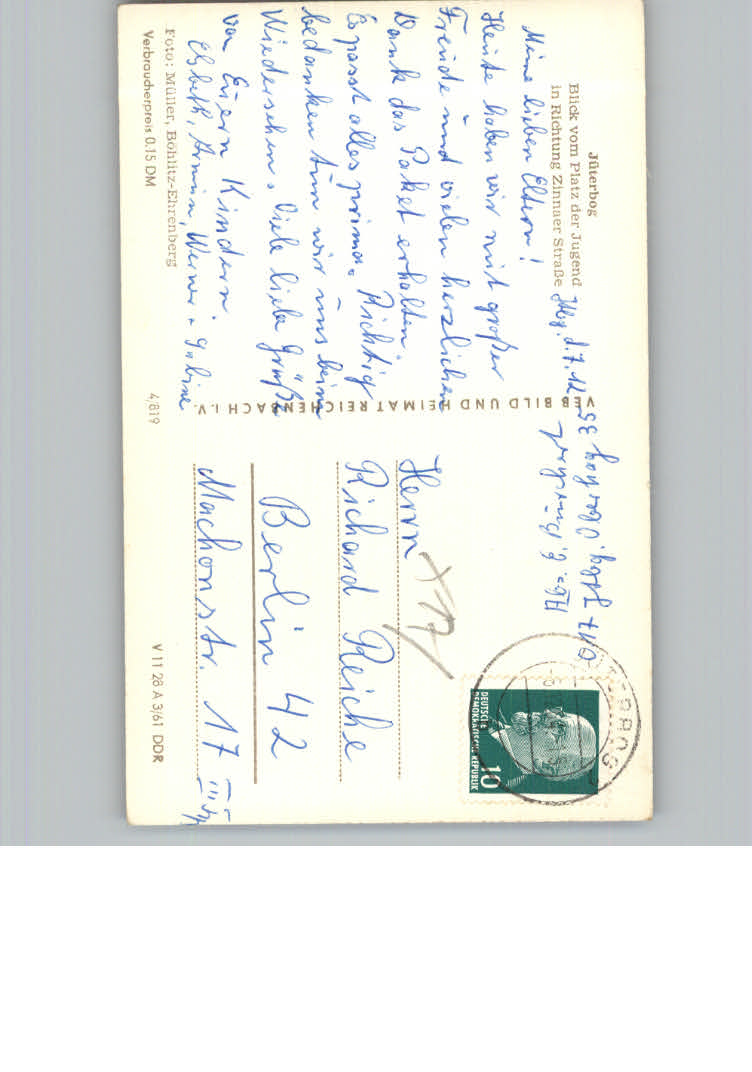 Jüterbog
Blick vom Platz der Jugend
in Richtung Zinnaer Straße
Jbg. d. 7. 12.
Meine lieben Eltern!
Heute haben wir mit großer
Freude und vielen herzlichen
Dank das Paket erhalten.
Es passt alles prima. Richtig
bedanken tun wir uns beim
Wiedersehen. Viele liebe Grüße
von Euern Kindern
Elsbeth, Armin, Werner + Sabine
Foto: Müller, Böhlitz-Ehrenberg
Verbraucherpreis 0.15 DM
4/819
VEB BILD UND HEIMAT REICHENBACH I. V.
JÜTERBOG
DEUTSCHE
DEMOKRATISCHE REPUBLIK
10
Herrn
Richard Reiche
Berlin 42
Machonstr. 17
V 11 28 A 3/61 DDR